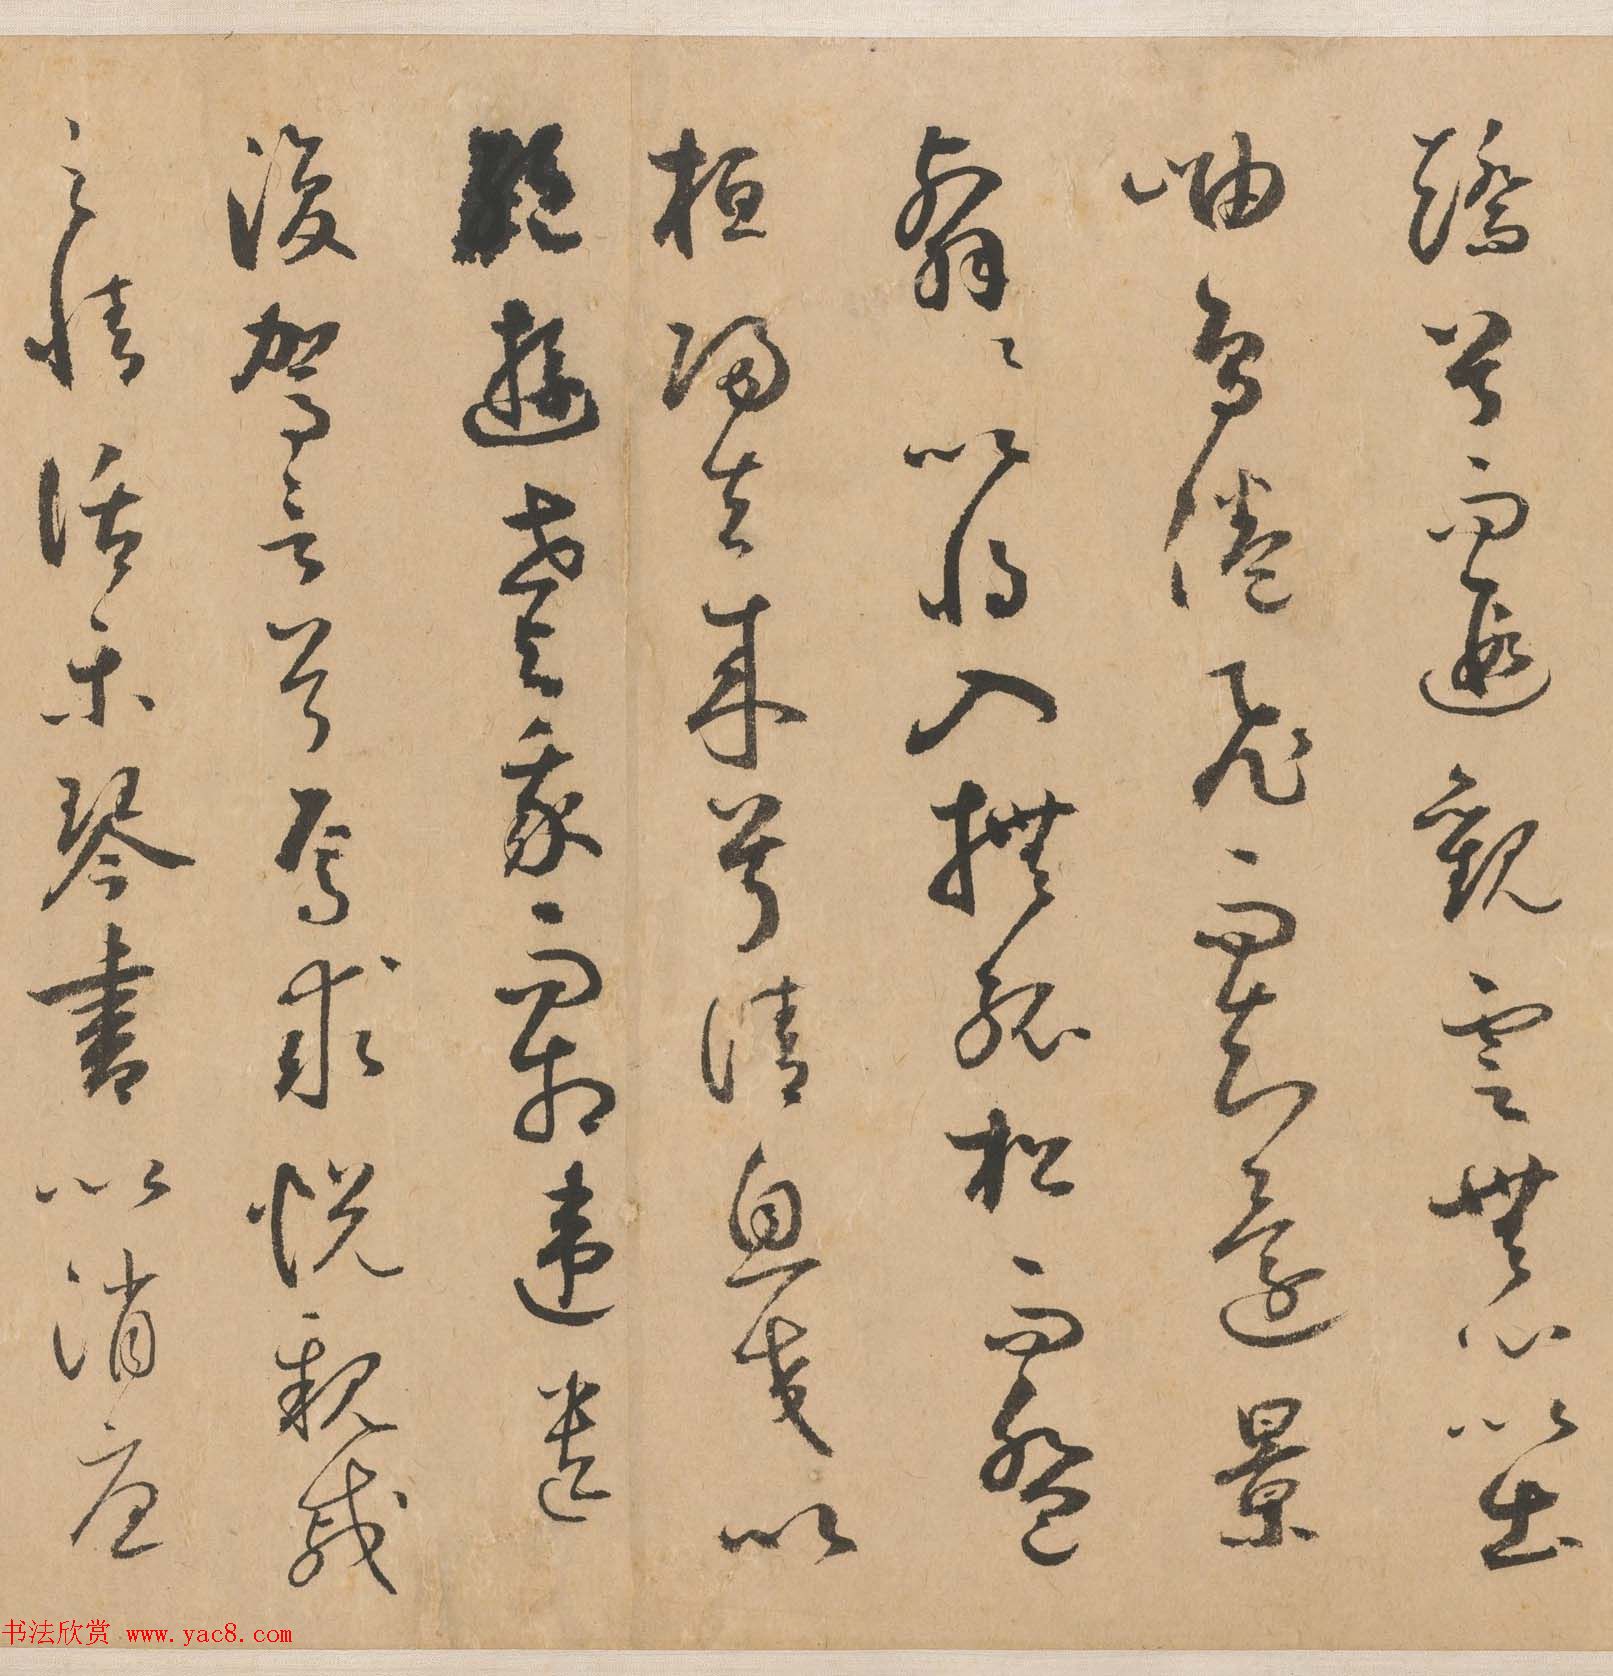 矯首而遐觀雲無心以出
岫鳥倦飛而知還景
翳〻以將入撫孤松而盤
桓歸去來兮請息交以
絕遊世與我而相違遺
復駕言兮焉求悅親戚
之情話樂琴書以消憂
书法欣赏 www.yac8.com